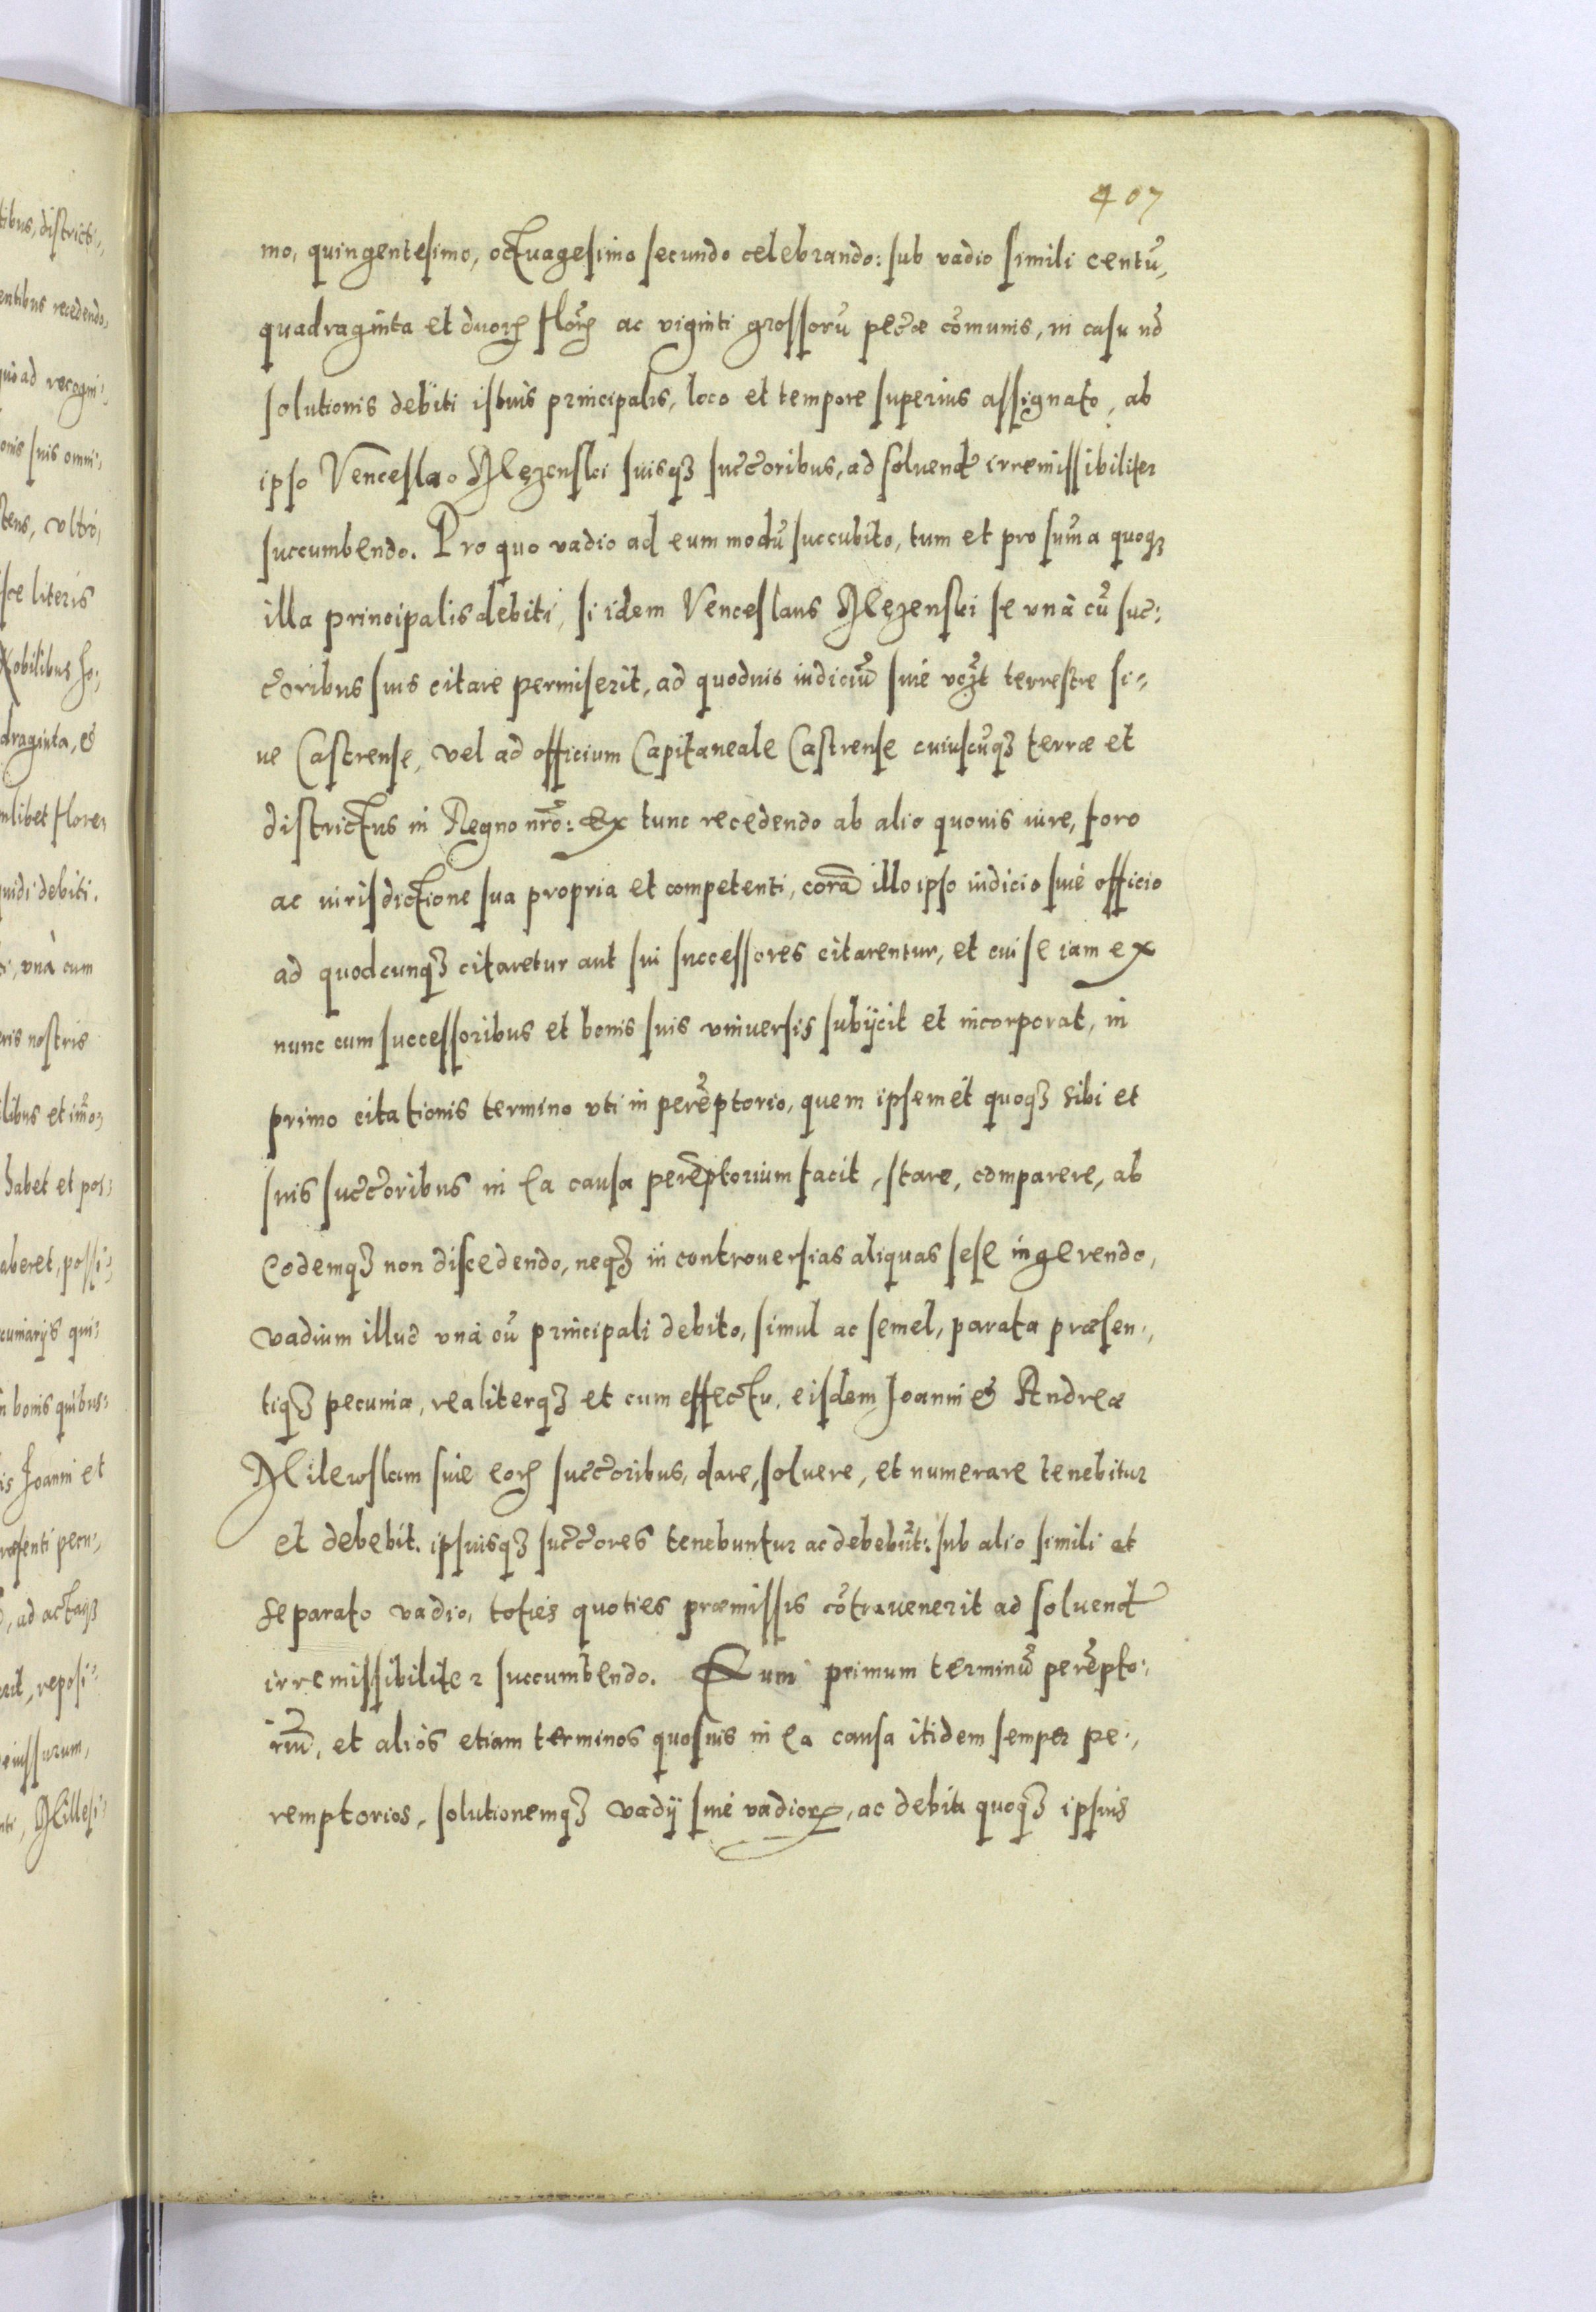 407
mo, quingentesimo, octuagesimo secundo celebrando: sub vadio simili centũ,
quadraginta et duorꝝ florꝝ ac viginti grossorũ pecc̃æ cõmunis, in casu nõ
solutionis debiti istius principalis, loco et tempore superius assignato, ab
ipso Venceslao suisqꝫ succc̃oribus, ad soluend̃ irremissibiliter
succumbendo. Pro quo vadio ad eum modũ succubito, tum et pro sum̃a quoqꝫ
illa principalis debiti, si idem Venceslaus se vnà cũ suc:
c̃oribus suis citare permiserit, ad quoduis iudiciũ siue terrestre si:
ue Castrense, vel ad officium Capitaneale Castrense cuiuscũqꝫ terræ et
districtus in Regno nr̃o: Ex tunc recedendo ab alio quouis iure, foro
ac iurisdictione sua propria et competenti, corã illo ipso iudicio siue officio
ad quodcunqꝫ citaretur aut sui successores citarentur, et cui se iam ex
nunc cum successoribus et bonis suis vniuersis subijcit et incorporat, in
primo citationis termino vti in perẽptorio, quem ipsemet quoqꝫ sibi et
suis succc̃oribus in ea causa perẽptorium facit, stare, comparere, ab
eodemqꝫ non discedendo, neqꝫ in controuersias aliquas sese ingerendo,
vadium illud vnà cũ principali debito, simul ac semel, parata præsen:
tiqꝫ pecunia, realiterqꝫ et cum effectu, eisdem Joanni et Andreæ
siue eorꝝ succc̃oribus, dare, soluere, et numerare tenebitur
et debebit. ipsiusqꝫ succc̃ores tenebuntur ac debebũt: sub alio simili et
separato vadio, toties quoties præmissis cõtrauenerit ad soluend̃
irremissibiliter succumbendo. Eum primum terminũ perẽpto:
riũ, et alios etiam terminos quosuis in ea causa itidem semper pe:
remptorios, solutionemqꝫ vadij siue vadiorꝝ, ac debiti quoqꝫ ipsius